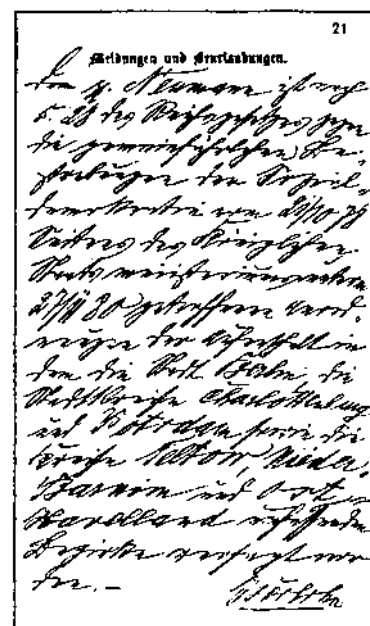 21
Meldungen und Beurlaubungen.
Dem p. Neumann ist nach
§. 28 des Reichsgesetzes gegen
die gemeingefährlichen Be-
strebungen der Sozial-
demokratie vom 21/10 78
Seitens des Königlichen
Staatsministeriums unterm
27/11 80 getroffenen Anord-
nungen der Aufenthalt in
dem die Stadt Berlin, die
Stadtkreise Charlottenburg
und Potsdam sowie die
Kreise Teltow, Nieder-
Barnim und Ost-
Havelland umfassenden
Bezirke versagt wor-
den. –